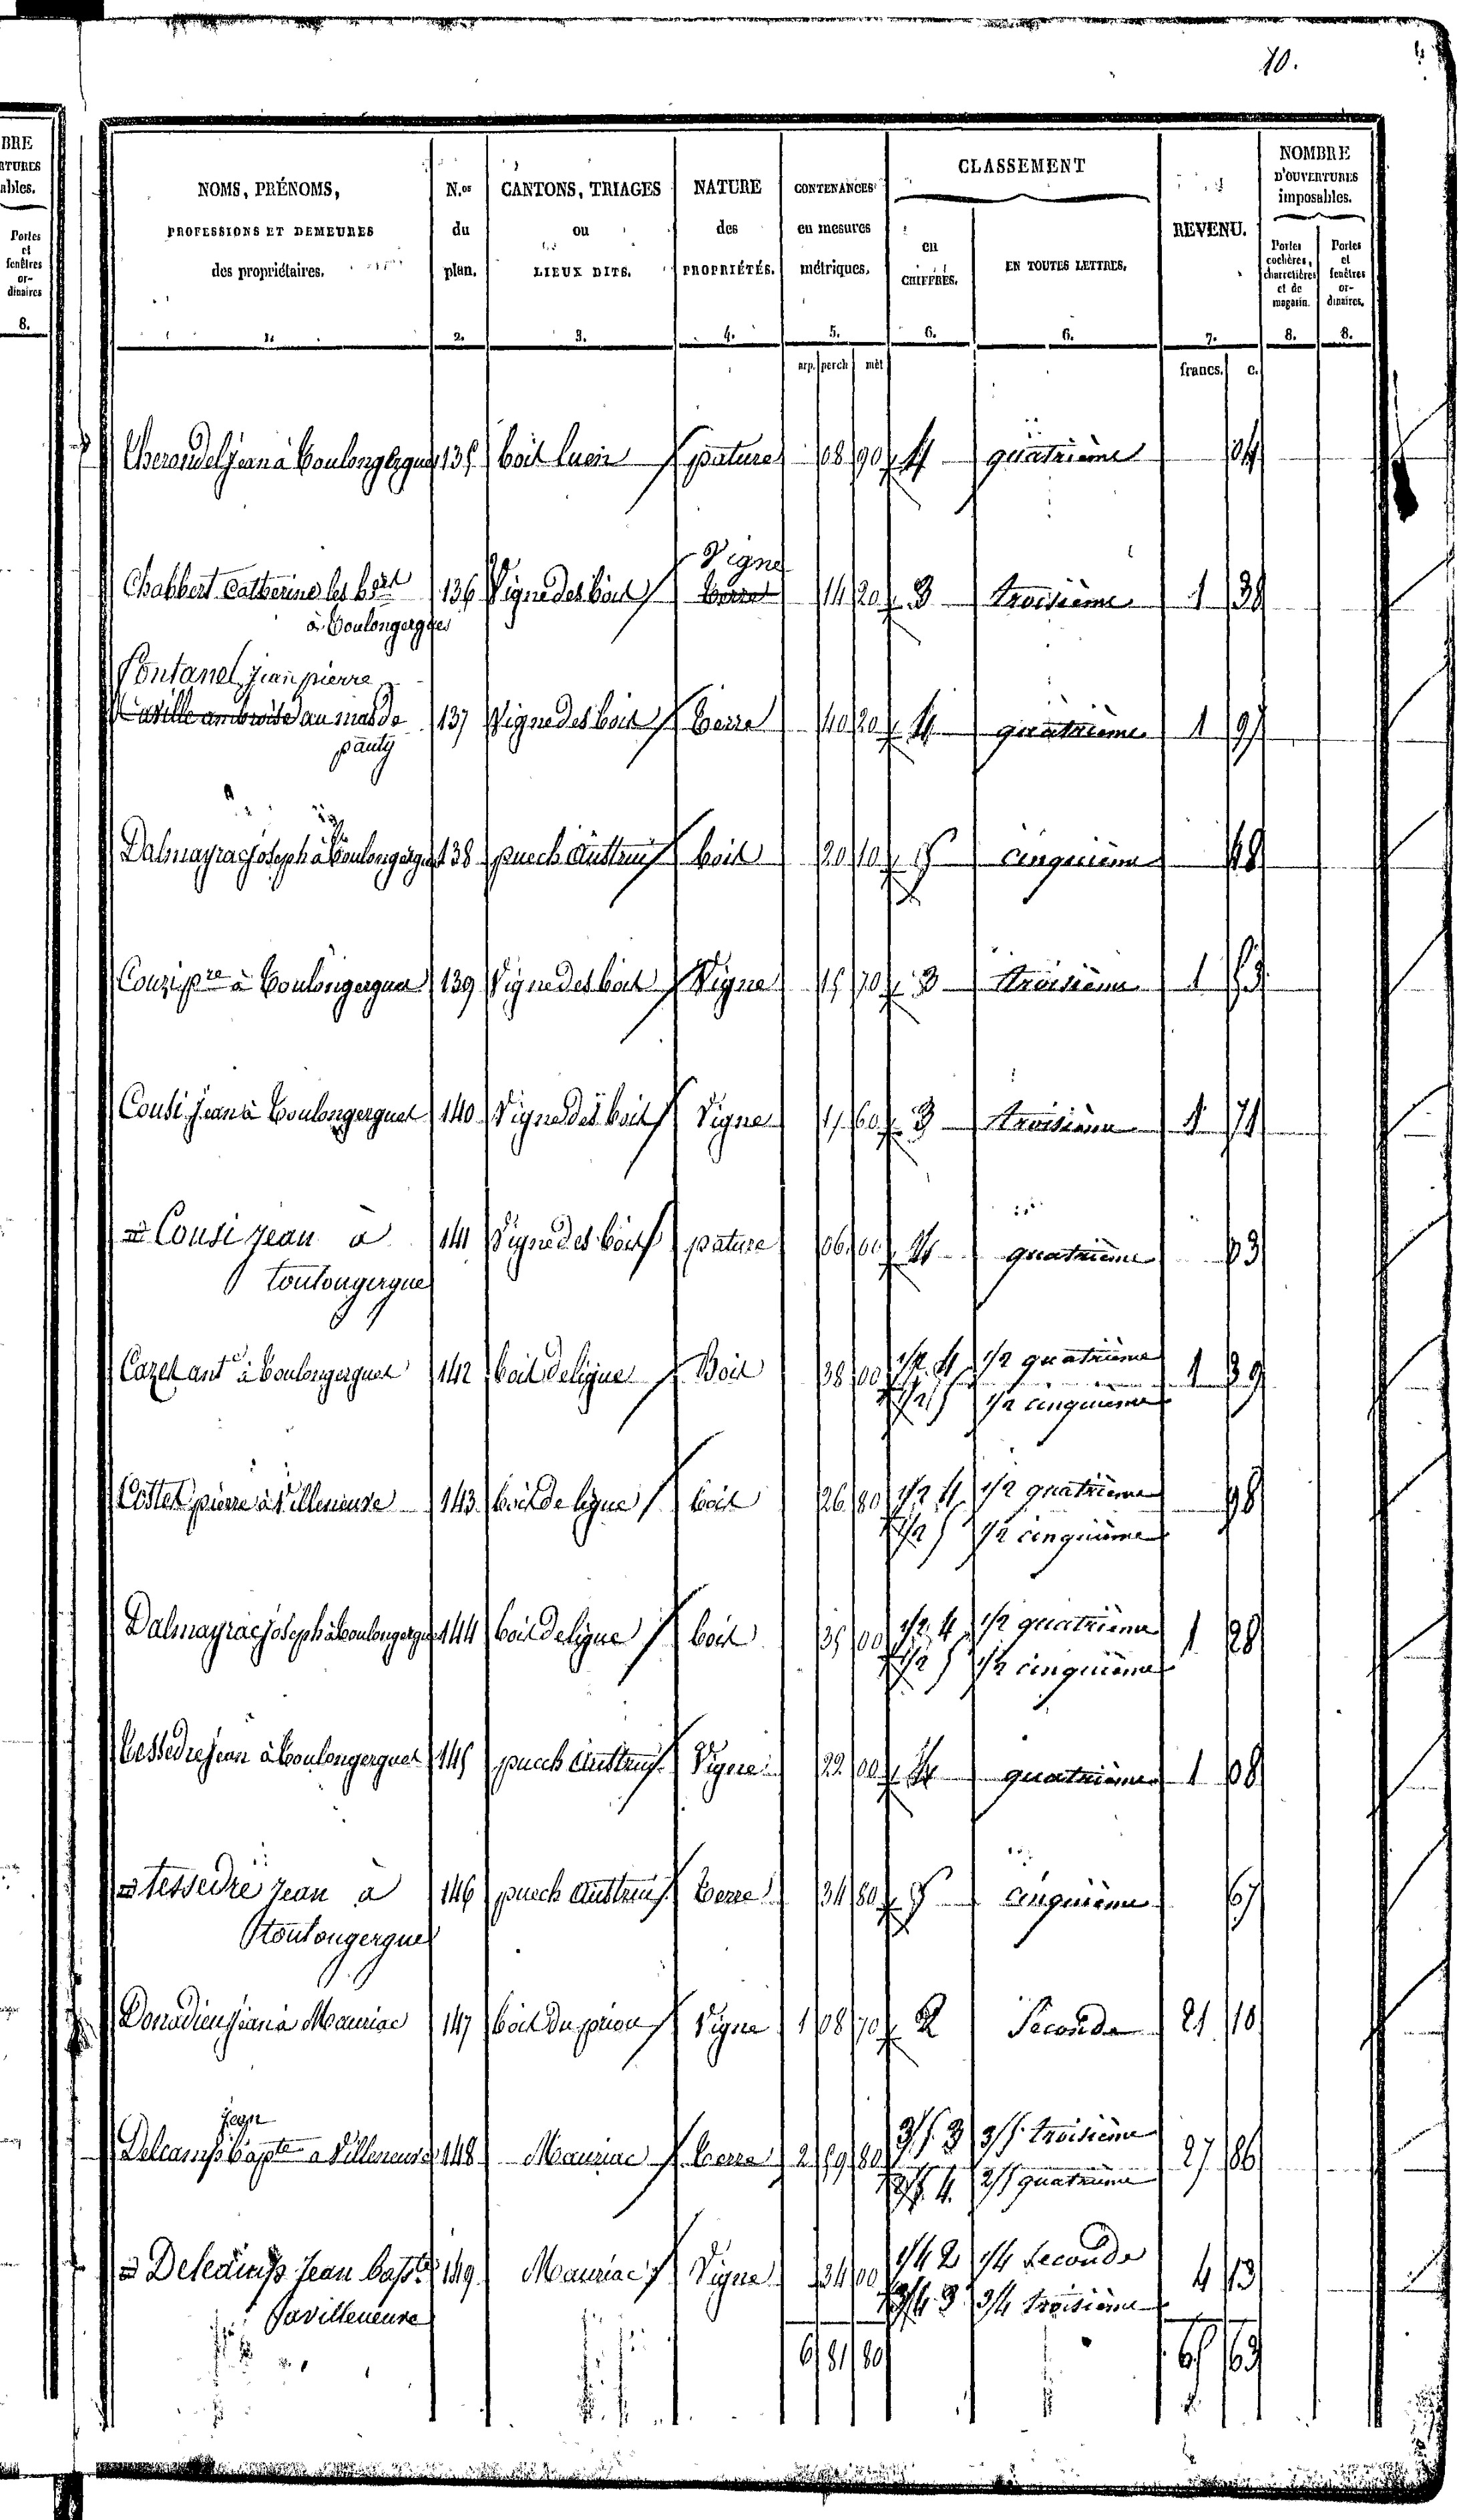 10.
BRE
ables.
Portes
et
fenêtres
or-
dinaires
8.
NOMS, PRÉNOMS,
PROFESSIONS ET DEMEURES
des propriétaires.
1.
N.os
du
plan.
2.
CANTONS, TRIAGES
ou
LIEUX DITS.
3.
NATURE
des
PROPRIÉTÉS.
4.
CONTENANCES
en mesures
métriques.
5.
CLASSEMENT
en
CHIFFRES.
6.
EN TOUTES LETTRES.
6.
REVENU.
7.
NOMBRE
D'OUVERTURES
imposables.
Portes
cochères,
charretières
et de
magasin.
8.
Portes
et
fenêtres
or-
dinaires.
8.
arp. perch mèt francs. c.
Jean à Toulongergues 135 bois pature 08 90 4 quatrième 04
Vigne
Chabbert Catherine les hert 136 Vigne des bois Terre 14 20 3 troisième 1 38
à Toulongergues
Fontanel jean pierre
ambroise au mas de 137 Vigne des bois Terre 40 20 4 quatrième 1 97
pauty
Dalmayrac joseph à Toulongergues 138 puech bois 20 10 5 cinquième 48
Couzi pre à Toulongergues 139 Vigne des bois Vigne 15 70 3 troisième 1 53
Cousi Jean à Toulongergues 140 Vigne des bois Vigne 17 60 3 troisième 1 71
Cousi jean à 141 Vigne des bois pature 06 00 4 quatrième 03
toulongergue
Cazes ant à Toulongergues 142 bois de ligue Bois 38 00 1/2 4 1/2 quatrième 1 39
1/2 5 1/2 cinquième
Costes pierre à Villeneuve 143 bois de ligue bois 26 80 1/2 4 1/2 quatrième 98
1/2 5 1/2 cinquième
Dalmayrac joseph à Toulongergue 144 bois de ligue bois 35 00 1/2 4 1/2 quatrième 1 28
1/2 5 1/2 cinquième
Tessedre Jean à Toulongergues 145 puech Vigne 22 00 4 quatrième 1 08
tessedre jean à 146 puech Terre 34 80 5 cinquième 67
toulongergue
Donadieu Jean à Mauriac 147 bois du priou Vigne 1 08 70 2 Seconde 21 18
jean
Delcamp bapte a Villeneuve 148 Mauriac Terre 2 59 80 3/5 3 3/5 troisième 27 86
2/5 4. 2/5 quatrième
Delcamp Jean bapte 149 Mauriac Vigne 34 00 1/4 2 1/4 seconde 4 13
a villeneuve 3/4 3 3/4 troisième
6 81 80 65 63